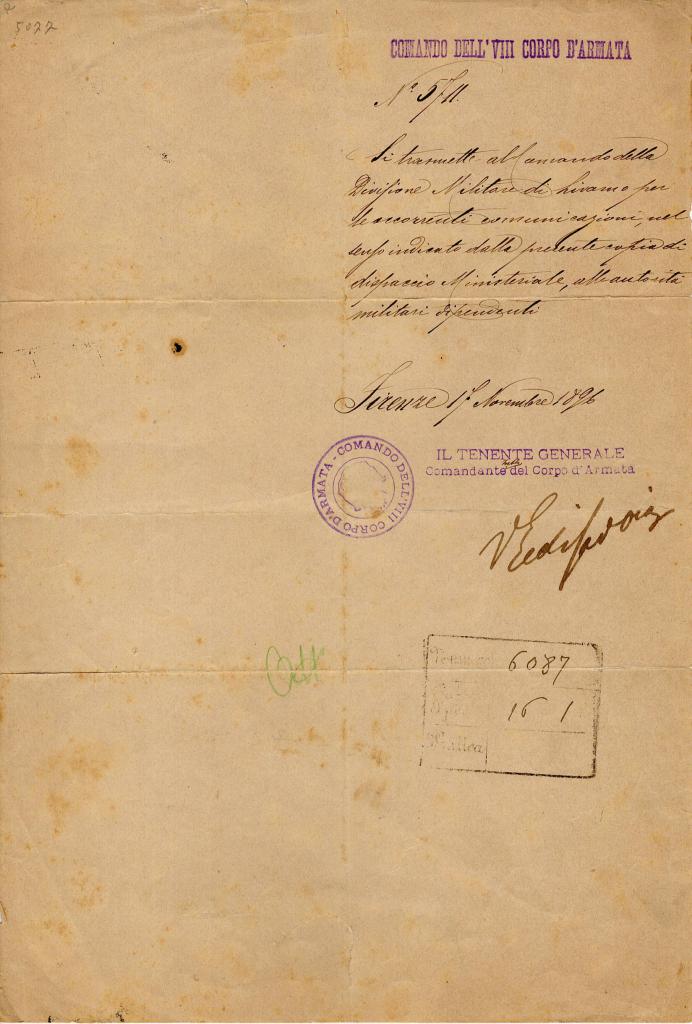 5022
COMANDO DELL'VIII CORPO D'ARMATA
N.º 5711.
Si trasmette al Comando della
Divisione Militare di Livorno per
le occorrenti comunicazioni, nel
senso indicato dalla presente copia di
dispaccio Ministeriale, alle autorità
militari dipendenti
Firenze 17 Novembre 1896
COMANDO DELL'VIII CORPO D'ARMATA
IL TENENTE GENERALE
Comandante del Corpo d'Armata
6087
16 1